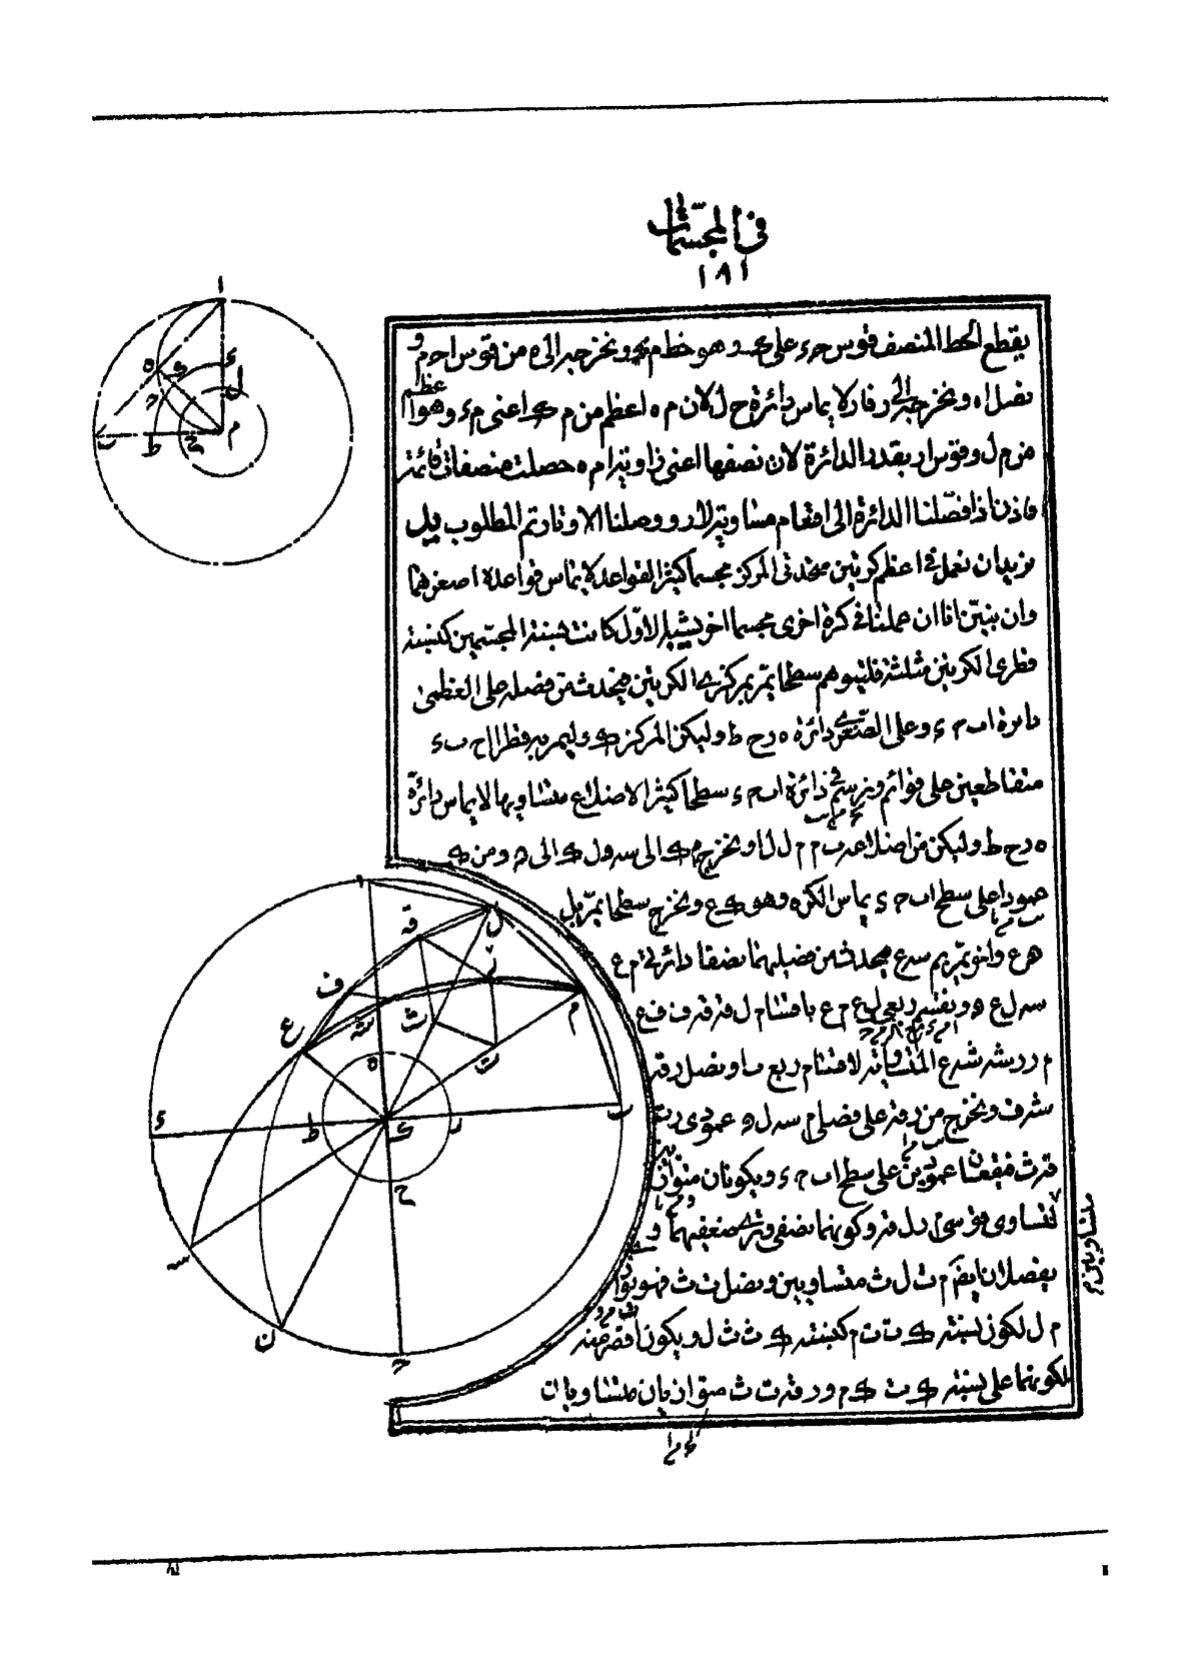 في المجسمات
١٨١
يقطع الخط المنصف قوس ح ء على و هو خط م و نخرج الى ه من قوس ا ح م و
نصل ا ه و نخرج الى ر فا ر لا يماس دائرة ح ل لان م ه اعظم من م اعنى م ء و هو اعظم
من م ل و قوس ا ر يقدر الدائرة لان نصفها اعنى زاوية ا م ه حصلت من تنصيفات قائمة
فاذن اذا فصلنا الدائرة الى اقسام مساوية لا ر و وصلنا الاوتار تم المطلوب
نريد ان نعمل فى اعظم كرتين متحدتى المركز مجسما كثير القواعد لا يماس قواعده اصغرهما
و ان نبين انا ان عملنا فى كرة اخرى مجسما اخر يشبه الاول كانت نسبة المجسمين كنسبة
قطرى الكرتين مثلثة فليتوهم سطحا يمر بمركزى الكرتين فيحدث من فصله على العظمى
دائرة ا ب ح ء و على الصغرى دائرة ه ر ح ط و ليكن المركز ك و ليمر به قطرا ا ح ب ء
متقاطعين على قوائم و نرسم فى دائرة ا ب ح ء سطحا كثير الاضلاع متساويها لا يماس دائرة
ه ر ح ط و ليكن من اضلاعه ب م م ل ل ا و نخرج م ك الى س و ل ك الى ن و من ك
عمودا على سطح ا ب ح ء يماس الكرة و هو ك ع و نخرج سطحا يمر بل
ن ع و اخر يمر بم س ع فيحدث من فصليهما نصفا دائرتى م ع
س ل ع ن و نقسم ربعى ل ع م ع باقسام ل ق ق ف ف ع
م ر ر ش ش ع المتساوية لاقسام ربع ا ب و نصل ر ق
ش ف و نخرج من ر ق على فصلى م س ل ن عمودى ر ت
ق ث فيقعان عمودين على سطح ا ب ح ء و يكونان متوازيين
لتساوى قوسى م ر ل ق و كونهما نصفى وترى ضعفيهما و
يفصلان ايضا م ت ل ث متساويين و نصل ت ث فهو يوازى
م ل لكون نسبة ك ت ت م كنسبة ك ث ث ل و يكون اقصر منه
لكونهما على نسبة ك ت ك م و ر ق ت ث متوازيان متساويان
متساويين